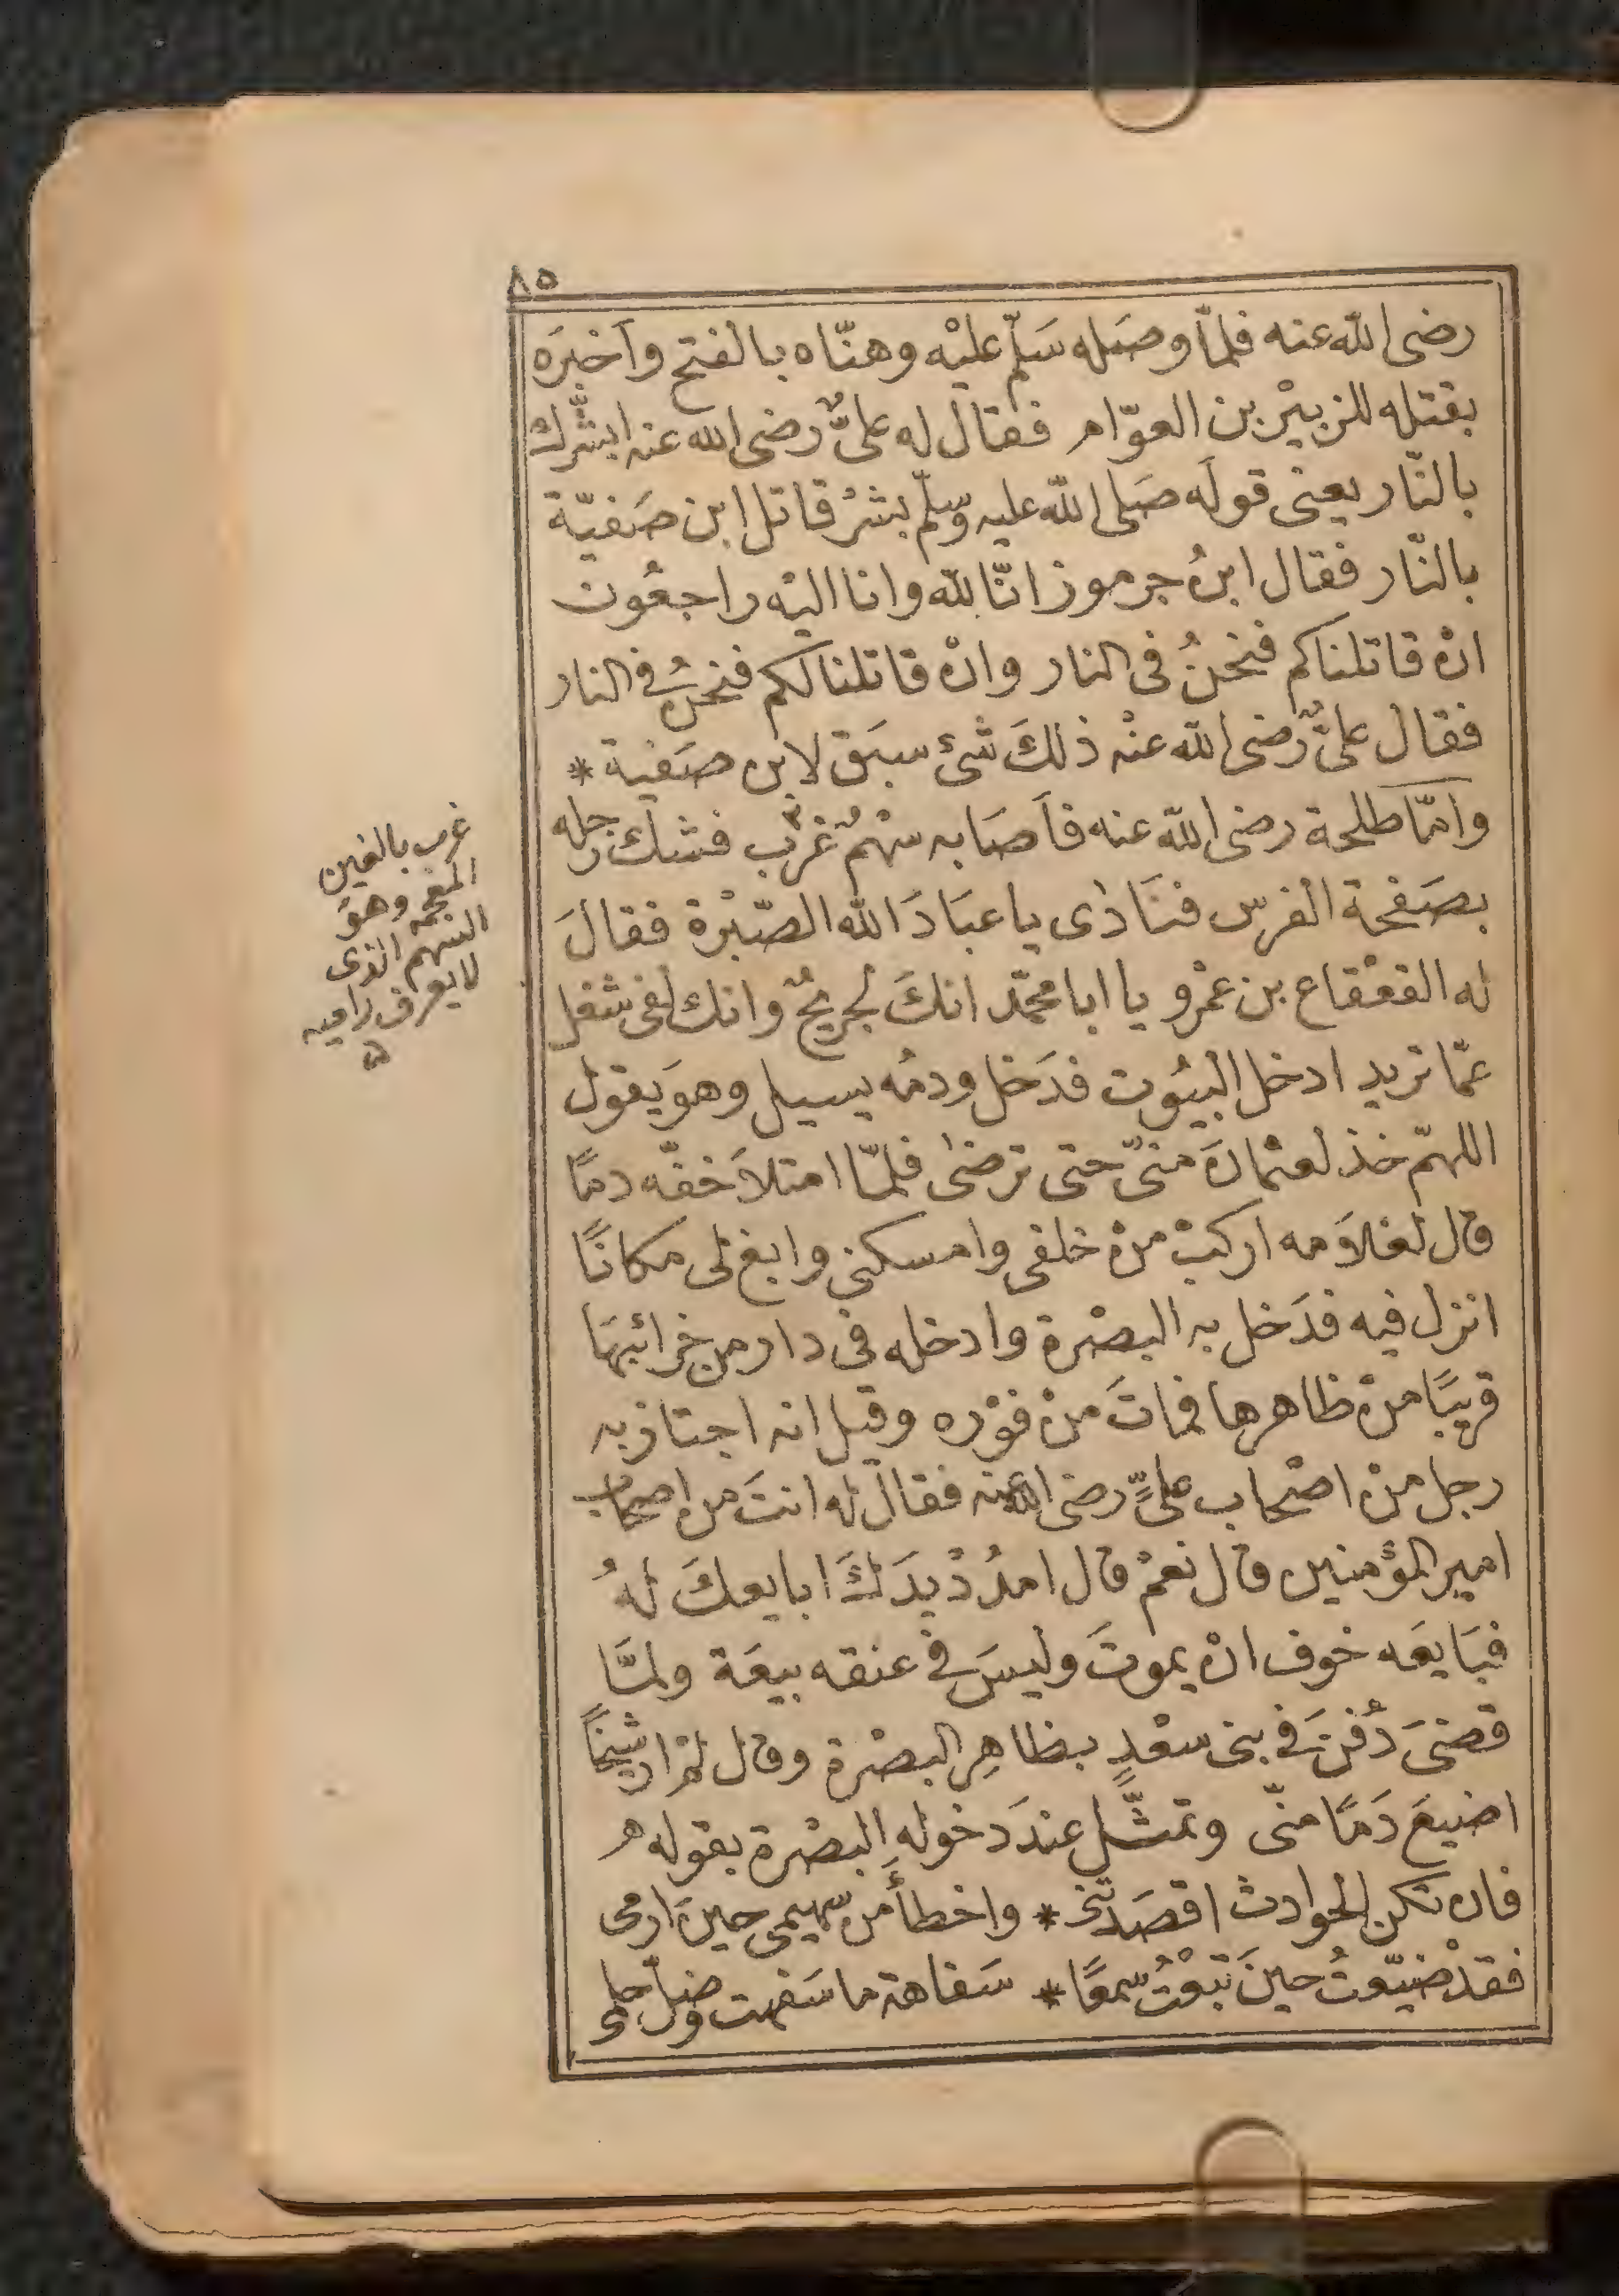 ٨٥
رضى الله عنه فلمّا وصَله سَلّم عليْه وهنّاه بالفتح وأخبرَه
بقتله للزبيْر بن العوّام فقال له علىٌّ رضى الله عنه ابشّرك
بالنّار يعنى قولَه صَلى الله عليه وسّلم بشرْ قاتل ابن صَفيّة
بالنّار فقال ابنُ جرموز انّا لله وانا اليْه راجعُون
انْ قاتلناكم فنحنُ فى النار وانْ قاتلنا لكم فنحنُ فى النار
فقال علىٌّ رضى الله عنْه ذلكَ شئ سبَق لابن صَفية *
وامّا طلحة رضى الله عنه فأصَابه سْهمٌ غرْب فشكّ رجله
بصَفحة الفرس فنَادٰى يا عبَادَ الله الصّبْرة فقالَ
له القعْقاع بن عمْرو يا ابا محمّد انكَ لجريحٌ وانك لفى شغل
عمّا تريد ادخل البيُوت فدَخل ودمُه يسيل وهوَ يقول
اللهمّ خذ لعثمانَ منىّ حتى ترضىٰ فلمّا امتلأ خفّه دمًا
قال لغلاَمه اركبْ منْ خلفى وامسكنى وابغ لى مكانًا
انزل فيه فدَخل به البصْرة وادخله فى دار من خرائبهَا
قريبًا منْ ظاهرها فماتَ منْ فوْره وقيل انه اجتاز به
رجل منْ اصْحاب علىٍّ رضى الله عنه فقالَ له انتَ من اصحاب
امير المؤمنين قال نعمْ قال امدُدْ يدَكَ ابايعكَ لهُ
فبَايعَه خوف انْ يموتَ وليسَ فى عنقه بيعَة ولمَّا
قضىَ دُفنَ فى بنى سعْدٍ بظاهِر البصْرة وقال لمْ ار شيخًا
اضيعَ دَمًا منّى وتمثَّل عندَ دخوله البصْرة بقوله
فان تكن الحوادث اقصَدتْنى * واخطأَهن سْهمى حينَ ارمى
فقدْ ضيّعتُ حينَ تبعْتُ سْهمًا * سَفاهة ما سَفهت وضلّ حلمى
غرب بالغين
المعجمة وهوَ
السهم الذى
لا يعرف راميه